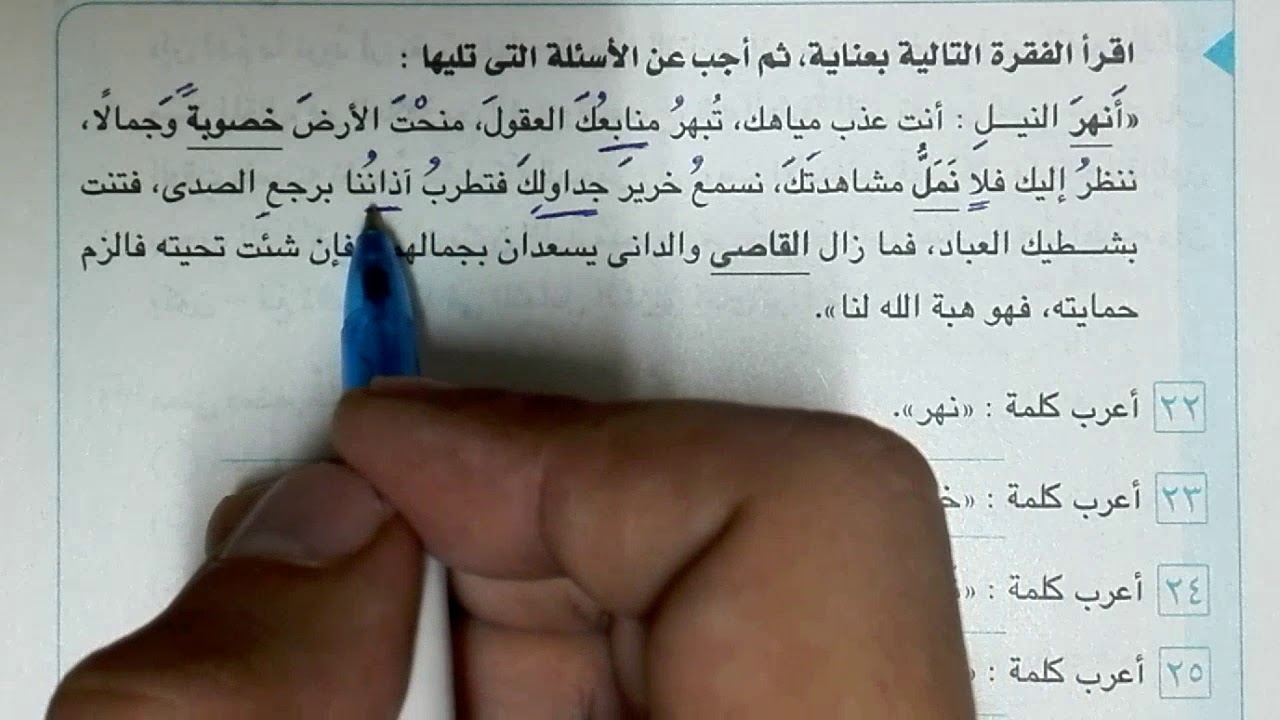 اقرأ الفقرة التالية بعناية، ثم أجب عن الأسئلة التى تليها :
«أَنهرَ النيـــلِ : أنت عذب مياهك، تُبهرُ منابعُكَ العقولَ، منحْتَ الأرضَ خصوبةً وَجمالًا،
ننظرُ إليك فلا نَمَلُّ مشاهدتَكَ، نسمعُ خريرَ جداولِكَ فتطربُ آذانُنا برجعِ الصدى، فتنت
بشـــطيك العباد، فما زال القاصى والدانى يسعدان فإن شئت تحيته فالزم
حمايته، فهو هبة الله لنا».
٢٢ أعرب كلمة : «نهر».
٢٣ أعرب كلمة :
٢٤ أعرب كلمة :
٢٥ أعرب كلمة :